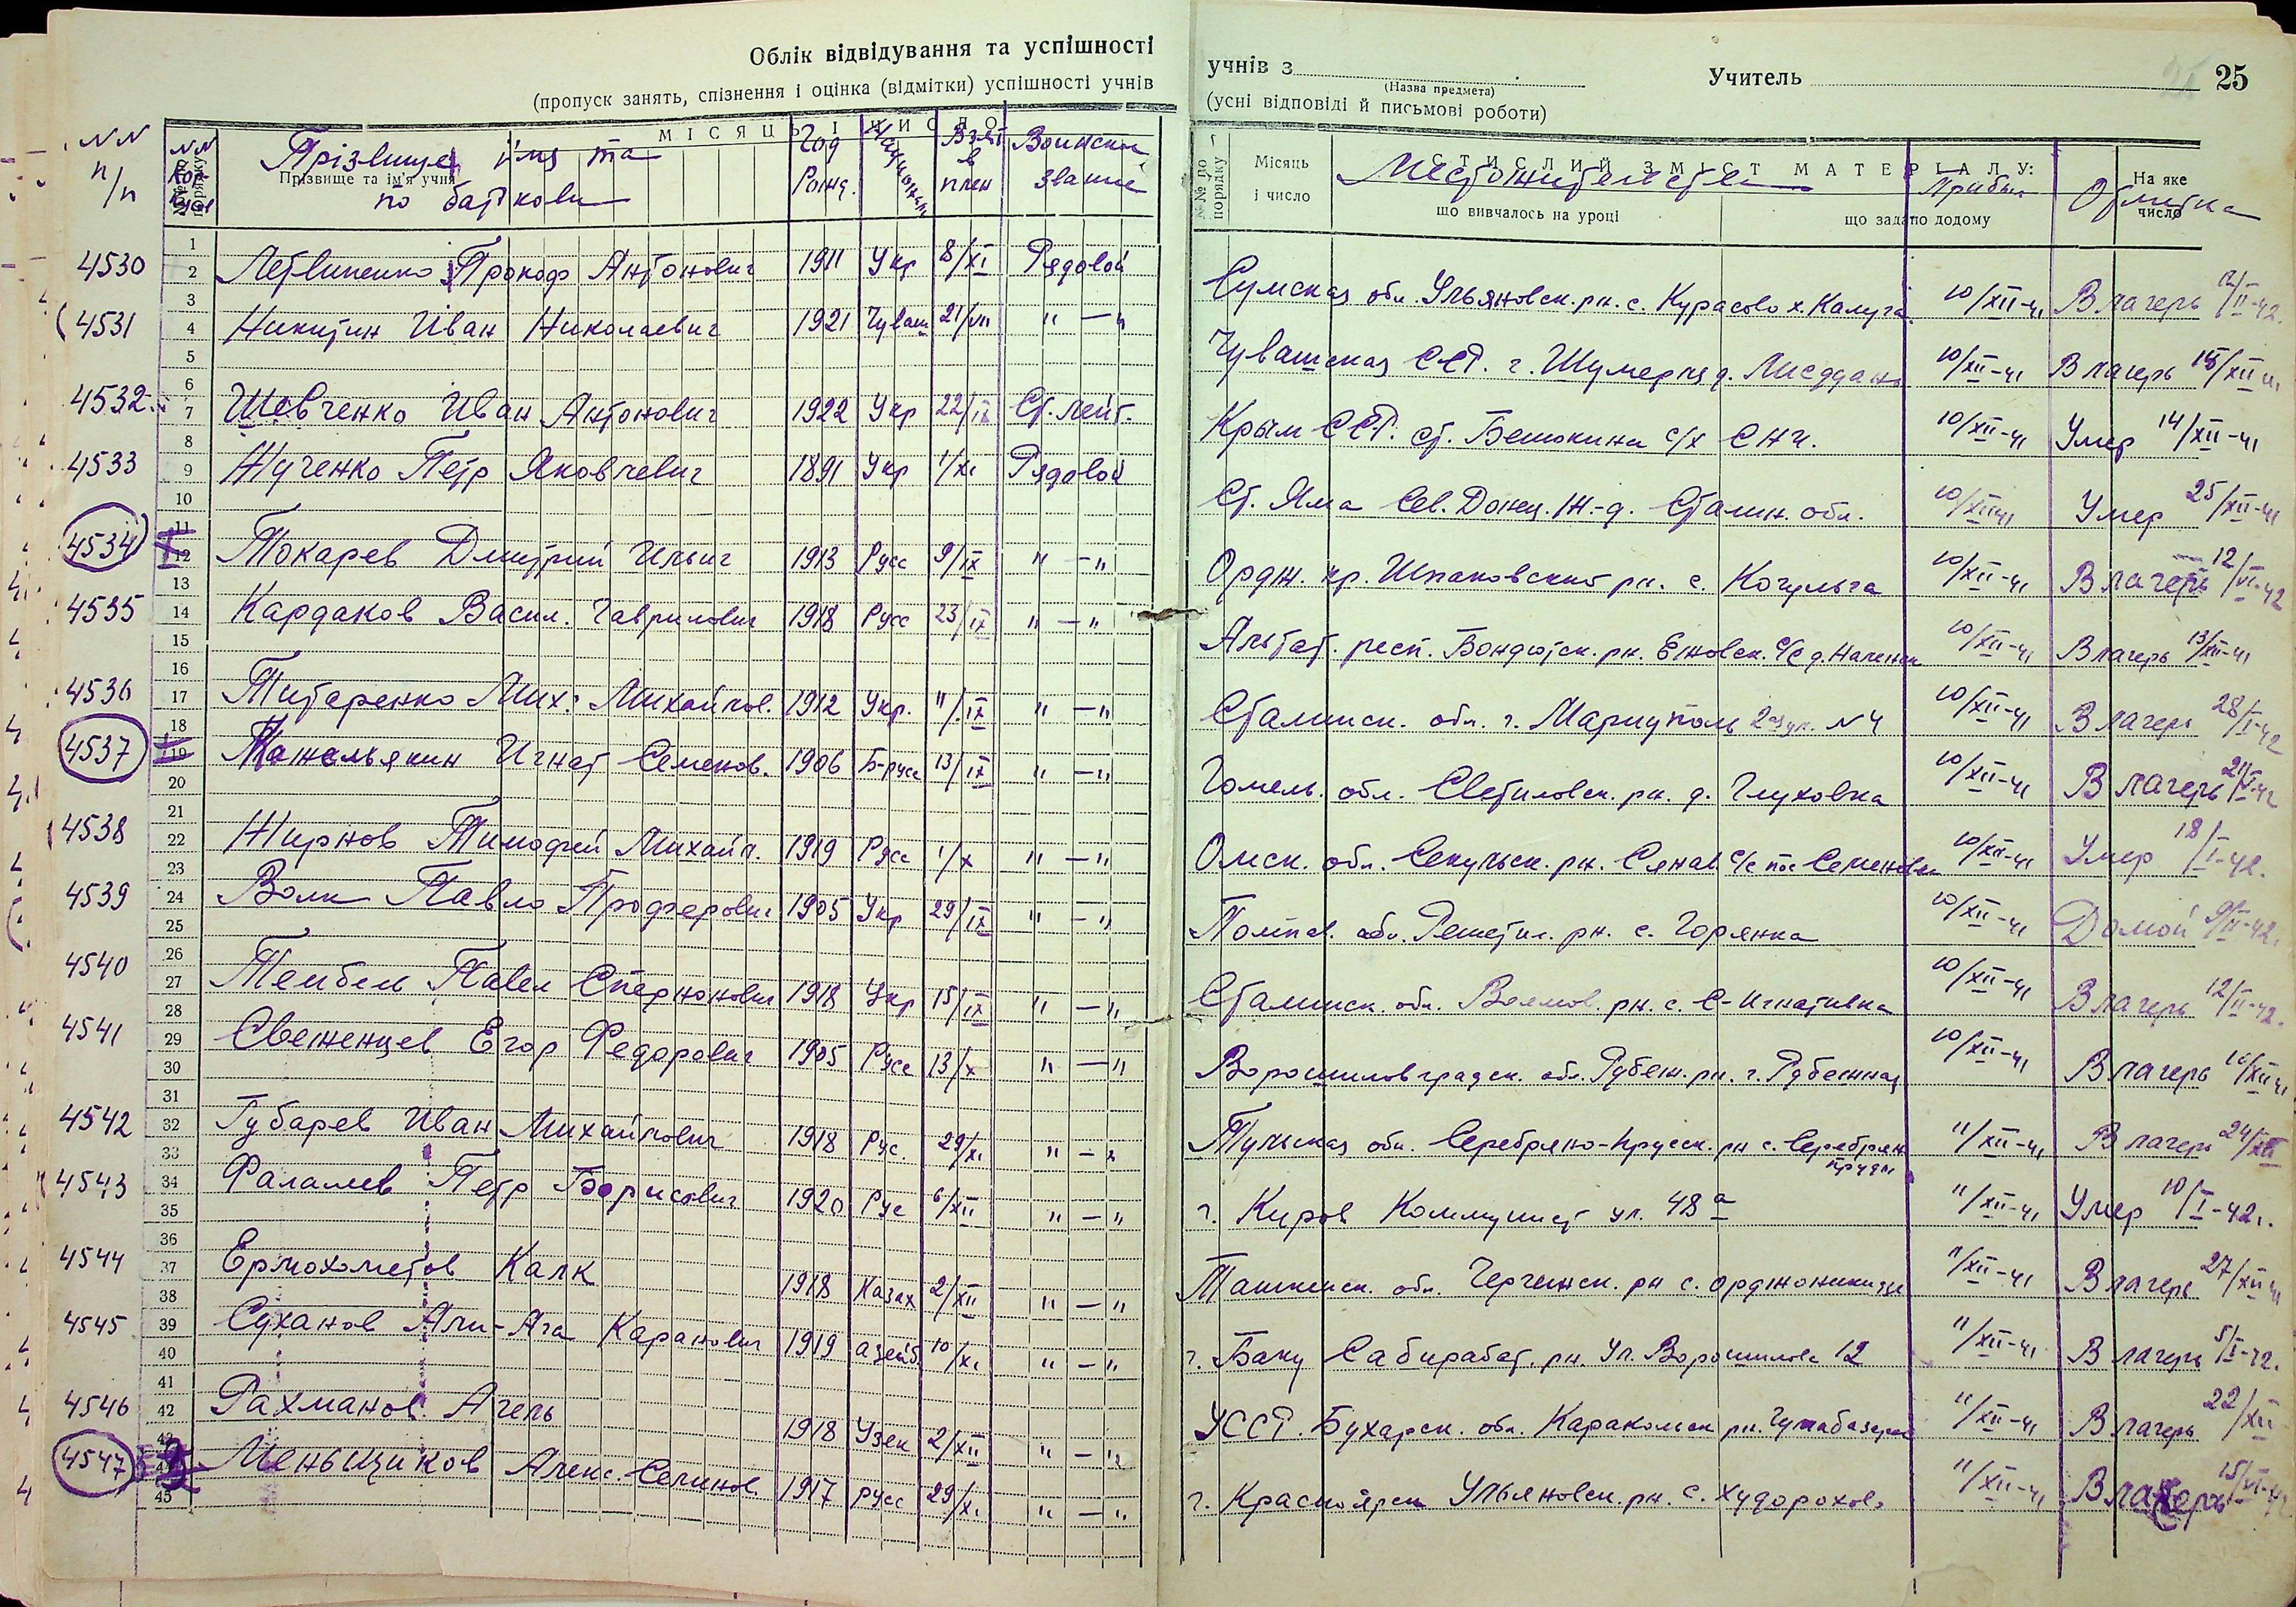 Облік відвідування та успішності
(пропуск занять, спізнення і оцінка (відмітки) успішності учнів
учнів з
(Назва предмета)
Учитель
25
(усні відповіді й письмові роботи)
NN п/п
NN
МІСЯЦЬ І ЧИСЛО
Прізвище, ім'я та по батькови
Прізвище та ім'я учня
Год Рожд.
Взят в плен
Воинское звание
№№ по порядку
Місяць і число
СТИСЛИЙ ЗМІСТ МАТЕРІАЛУ:
Местожительства
що вивчалось на уроці
що задано додому
Прибыл
На яке число
Отметка
4530 Летвиненко Прокоф Антонович 1911 Укр 8/XI Рядовой Сумская обл. Ульяновск. рн. с. Курасово х. Калуга 10/XII-41 В лагерь 12/II-42.
4531 Никитин Иван Николаевич 1921 Чуваш 21/VII " — " Чувашская ССР. г. Шумерля д. 10/XII-41 В лагерь 15/XII 41
4532 Шевченко Иван Антонович 1922 Укр 22/IX Ст. лейт. Крым ССР. ст. с/х 10/XII-41 Умер 14/XII-41
4533 Жученко Петр Яковлевич 1891 Укр 1/XI Рядовой Ст. Яма Сев. Донец. Ж.-д. Сталин. обл. 10/XII 41 Умер 25/XII-41
4534 Токарев Дмитрий Ильич 1913 Русс 9/IX " — " Ордж. кр. Шпаковский рн. с. Когульта 10/XII-41 В лагерь 12/VI-42
4535 Кардаков Васил. Гаврилович 1918 Русс 23/IX " — " респ. Бондюжск. рн. Ежовск. с/с д. 10/XII-41 В лагерь 13/XII-41
4536 Титаренко Мих. Михайлов. 1912 Укр. 11/IX " — " Сталинск. обл. г. Мариуполь 2ая ул. N 4 10/XII-41 В лагерь 28/I-42
4537 Игнат Семенов. 1906 Б-русс 13/IX " — " Гомель. обл. Светиловск. рн. д. Глуховка 10/XII-41 В лагерь
4538 Жирнов Тимофей Михайл. 1919 Русс 1/X " — " Омск. обл. рн. с/с 10/XII-41 Умер 18/I-42.
4539 Волк Павло 1905 Укр 29/IX " — " Полтав. обл. Решетил. рн. с. Горянка 10/XII-41 Домой 9/II-42.
4540 Павел 1918 Укр 15/IX " — " Сталинск. обл. рн. с. С-Игнативка 10/XII-41 В лагерь 12/II-42.
4541 Свеженцев Егор Федорович 1905 Русс 13/X " — " Ворошиловградск. обл. Рубеж. рн. г. Рубежная 10/XII-41 В лагерь
4542 Губарев Иван Михайлович 1918 Рус. 29/XI " — " Тульская обл. рн с. Серебрян. пруды 11/XII-41 В лагерь 24/XII
4543 Фалалев Петр Борисович 1920 Рус 6/XII " — " г. Киров Коммунист ул. 48 а 11/XII-41 Умер 10/I-42г.
4544 Ермохометов Калк 1918 Казах 2/XII " — " обл. рн с. Орджоникидзе 11/XII-41 В лагерь 27/XII 41
4545 Суханов Али-Ага Каранович 1919 азейб. 10/XI " — " г. Баку Сабирабат. рн. Ул. Ворошилова 12 11/XII-41 В лагерь 5/I-42.
4546 Рахманов Агель 1918 Узек 2/XII " — " УССР. Бухарск. обл. Каракольск рн. 11/XII-41 В лагерь 22/XII
4547 Меньщиков Алекс. Семинов. 1917 русс 29/XI " — " г. Красноярск Ульяновск. рн. с. Худорохово 11/XII-41 В лагерь